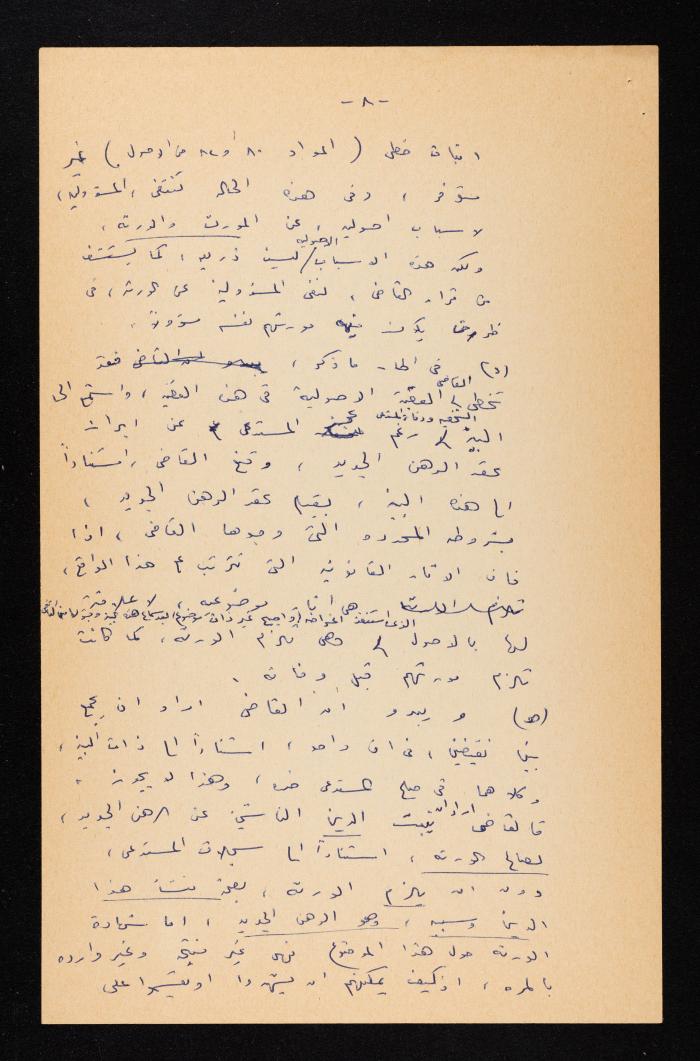 - ٨ -
اثبات خطي ( المواد ٨٠ و ٨٢ من الاصول ) غير
متوفر ، وفي هذه الحالة تنتفي المسؤولية ،
لاسباب اصولية ، عن المورث والورثة ،
ولكن هذه الاسباب الاصولية ليست ، كما يستشف
من قرار القاضي ، لنفي المسؤولية عن الورثة ، في
ظروف يكون فيها مورثهم نفسه مسؤولاً .
(د) في الحال ما ذكر ، فقد
تخطى القاضي العقبة الاصولية في هذه القضية ، واستمع الى
البينة رغم المستدعى عن ابراز
عقد الرهن الجديد ، وقنع القاضي ، استناداً
الى هذه البينة ، بقيام عقد الرهن الجديد ،
بشروطه المحدده التي وجدها القاضي ، اذا
فان الاثار القانونيه التي تترتب على هذا الواقع ،
هي اثار موضوعيه ، لا علاقة
لها بالاصول وهي تلزم الورثة ، كما كانت
تلزم مورثهم قبل وفاته .
(هـ) ويبدو ان القاضي اراد ان يجمع
بين نقيضين ، في ان واحد ، استناداً الى ذات البينة ،
وكلاهما في صالح المستدعى ضده ، وهذا لا يجوز .
فالقاضي اراد ان يثبت الدين الناشئ عن الرهن الجديد ،
لصالح الورثة ، استناداً الى سجلات المستدعى ،
دون ان يلزم الورثة ، بصحة منشأ هذا
الدين وسببه ، وهو الرهن الجديد ، اما شهادة
الورثة حول هذا الموضوع فهي غير منتجة وغير وارده
بالمره ، اذ كيف يمكنهم ان يشهدوا او على